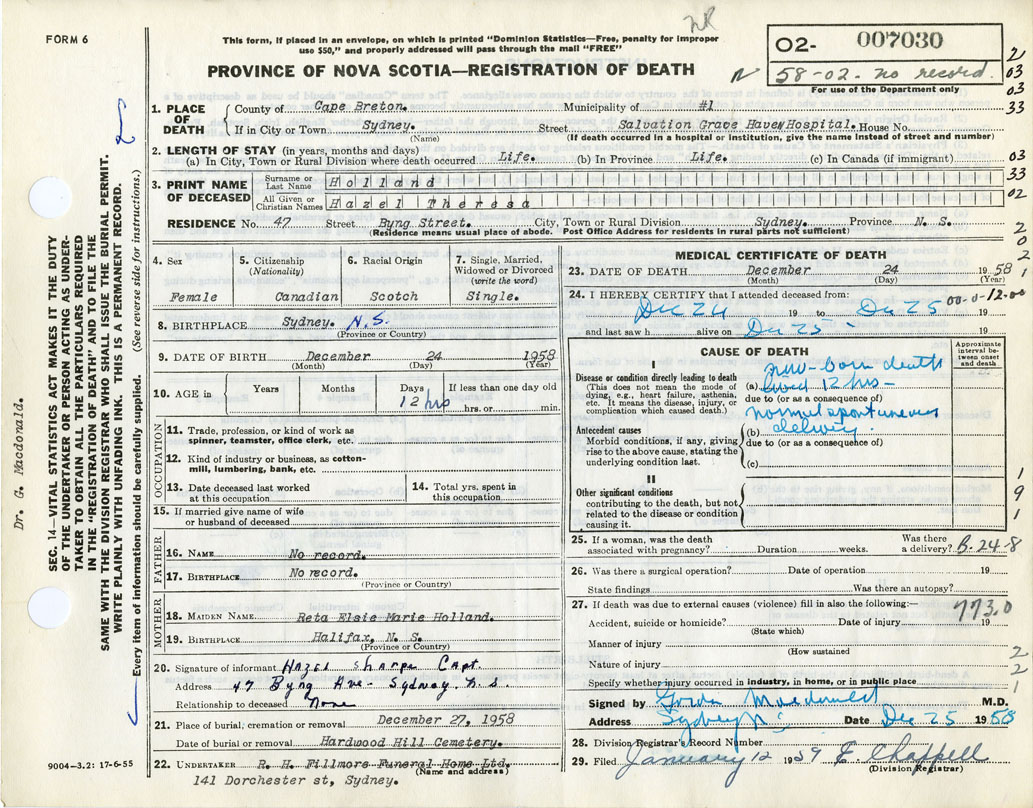 FORM 6
This form, if placed in an envelope, on which is printed "Dominion Statistics—Free, penalty for improper
use $50," and properly addressed will pass through the mail "FREE"
NR
PROVINCE OF NOVA SCOTIA—REGISTRATION OF DEATH
02- 007030
58-02- no record.
For use of the Department only
2
03
03
33
1. PLACE OF DEATH
County of Cape Breton. Municipality of #1
If in City or Town Sydney. Street Salvation Grace Haven Hospital. House No.
(Name) (If death occurred in a hospital or institution, give the name instead of street and number)
2. LENGTH OF STAY (in years, months and days)
(a) In City, Town or Rural Division where death occurred Life. (b) In Province Life. (c) In Canada (if immigrant)
03
3. PRINT NAME OF DECEASED
Surname or Last Name Holland
33
All Given or Christian Names Hazel Theresa
02
RESIDENCE No. 47 Street Byng Street. City, Town or Rural Division Sydney. Province N. S.
(Residence means usual place of abode. Post Office Address for residents in rural parts not sufficient)
2
0
2
1
4. Sex
Female
5. Citizenship
(Nationality)
Canadian
6. Racial Origin
Scotch
7. Single, Married,
Widowed or Divorced
(write the word)
Single.
8. BIRTHPLACE Sydney. N.S.
(Province or Country)
9. DATE OF BIRTH December 24 1958
(Month) (Day) (Year)
10. AGE in
Years
Months
Days
12 hrs
If less than one day old
hrs. or min.
OCCUPATION
11. Trade, profession, or kind of work as
spinner, teamster, office clerk, etc.
12. Kind of industry or business, as cotton-
mill, lumbering, bank, etc.
13. Date deceased last worked
at this occupation
14. Total yrs. spent in
this occupation
15. If married give name of wife
or husband of deceased
FATHER
16. NAME No record.
17. BIRTHPLACE No record.
(Province or Country)
MOTHER
18. MAIDEN NAME Reta Elsie Marie Holland.
19. BIRTHPLACE Halifax, N. S.
(Province or Country)
20. Signature of informant Hazel Sharpe Capt.
Address 47 Byng Ave- Sydney. N.S.
Relationship to deceased None
21. Place of burial, cremation or removal December 27, 1958
Date of burial or removal Hardwood Hill Cemetery.
22. UNDERTAKER R. H. Fillmore Funeral Home Ltd.
(Name and address)
141 Dorchester st, Sydney.
MEDICAL CERTIFICATE OF DEATH
23. DATE OF DEATH December 24 1958
(Month) (Day) (Year)
24. I HEREBY CERTIFY that I attended deceased from: 00-0-12-00
Dec 24 19 to Dec 25 19
and last saw h alive on Dec 25 - 19
CAUSE OF DEATH
Approximate
interval be-
tween onset
and death
I
Disease or condition directly leading to death
(This does not mean the mode of
dying, e.g., heart failure, asthenia,
etc. It means the disease, injury, or
complication which caused death.)
new-born death
(a) lived 12 hrs-
due to (or as a consequence of)
normal spontaneous
Antecedent causes
Morbid conditions, if any, giving
rise to the above cause, stating the
underlying condition last.
(b) delivery.
due to (or as a consequence of)
(c)
II
Other significant conditions
contributing to the death, but not
related to the disease or condition
causing it.
1
9
1
25. If a woman, was the death
associated with pregnancy? Duration weeks. Was there
a delivery? B-24-8
26. Was there a surgical operation? Date of operation 19
State findings Was there an autopsy?
27. If death was due to external causes (violence) fill in also the following:— 773.0
Accident, suicide or homicide? Date of injury 19
(State which)
Manner of injury
(How sustained
Nature of injury
Specify whether injury occurred in industry, in home, or in public place
2
2
1
Signed by Gordon Macdonald M.D.
Address Sydney NS Date Dec 25 1958
28. Division Registrar's Record Number
29. Filed January 12 1959 E. Chappell
(Division Registrar)
9004—3.2: 17-6-55
Dr. G. Macdonald.
SEC. 14—VITAL STATISTICS ACT MAKES IT THE DUTY
OF THE UNDERTAKER OR PERSON ACTING AS UNDER-
TAKER TO OBTAIN ALL THE PARTICULARS REQUIRED
IN THE "REGISTRATION OF DEATH" AND TO FILE THE
SAME WITH THE DIVISION REGISTRAR WHO SHALL ISSUE THE BURIAL PERMIT.
WRITE PLAINLY WITH UNFADING INK. THIS IS A PERMANENT RECORD.
Every item of information should be carefully supplied. (See reverse side for instructions.)